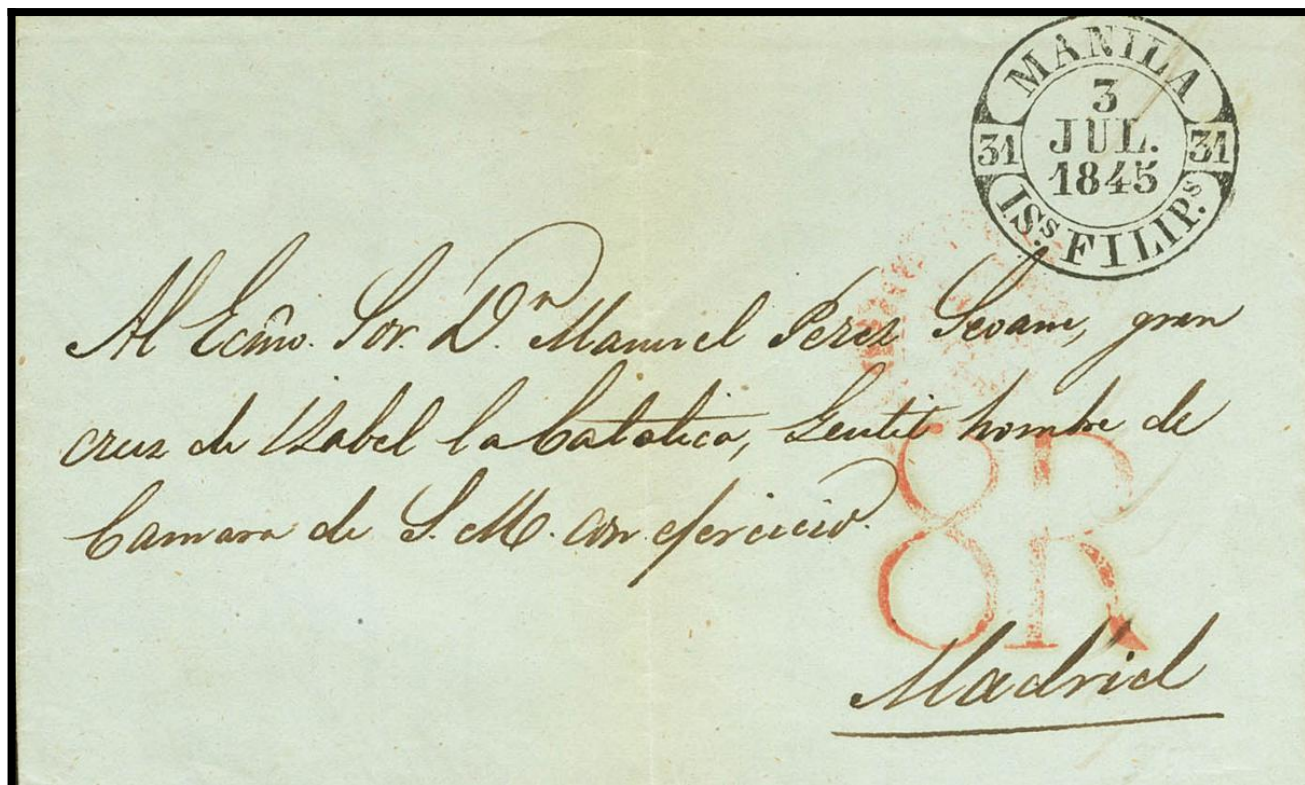 MANILA
3
JUL.
1845
31 31
IS.s FILIP.s
Al Ecmo. Sor. Dn. Manuel Perez Seoane, gran
cruz de Isabel la Catolica, Gentil hombre de
Camara de S. M. con ejercicio.
8R
Madrid